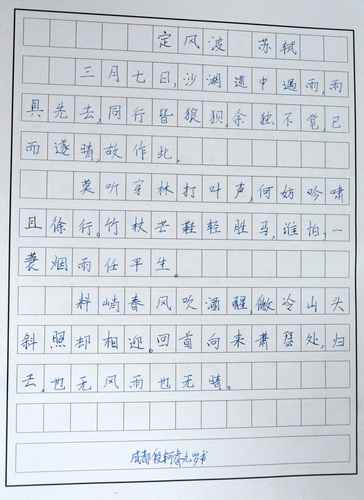 定风波 苏轼
三月七日,沙湖道中遇雨,雨
具先去,同行皆狼狈,余独不觉,已
而遂晴,故作此。
莫听穿林打叶声,何妨吟啸
且徐行。竹杖芒鞋轻胜马,谁怕,一
蓑烟雨任平生。
料峭春风吹酒醒微冷山头
斜照却相迎。回首向来萧瑟处,归
去,也无风雨也无晴。
成都段轲